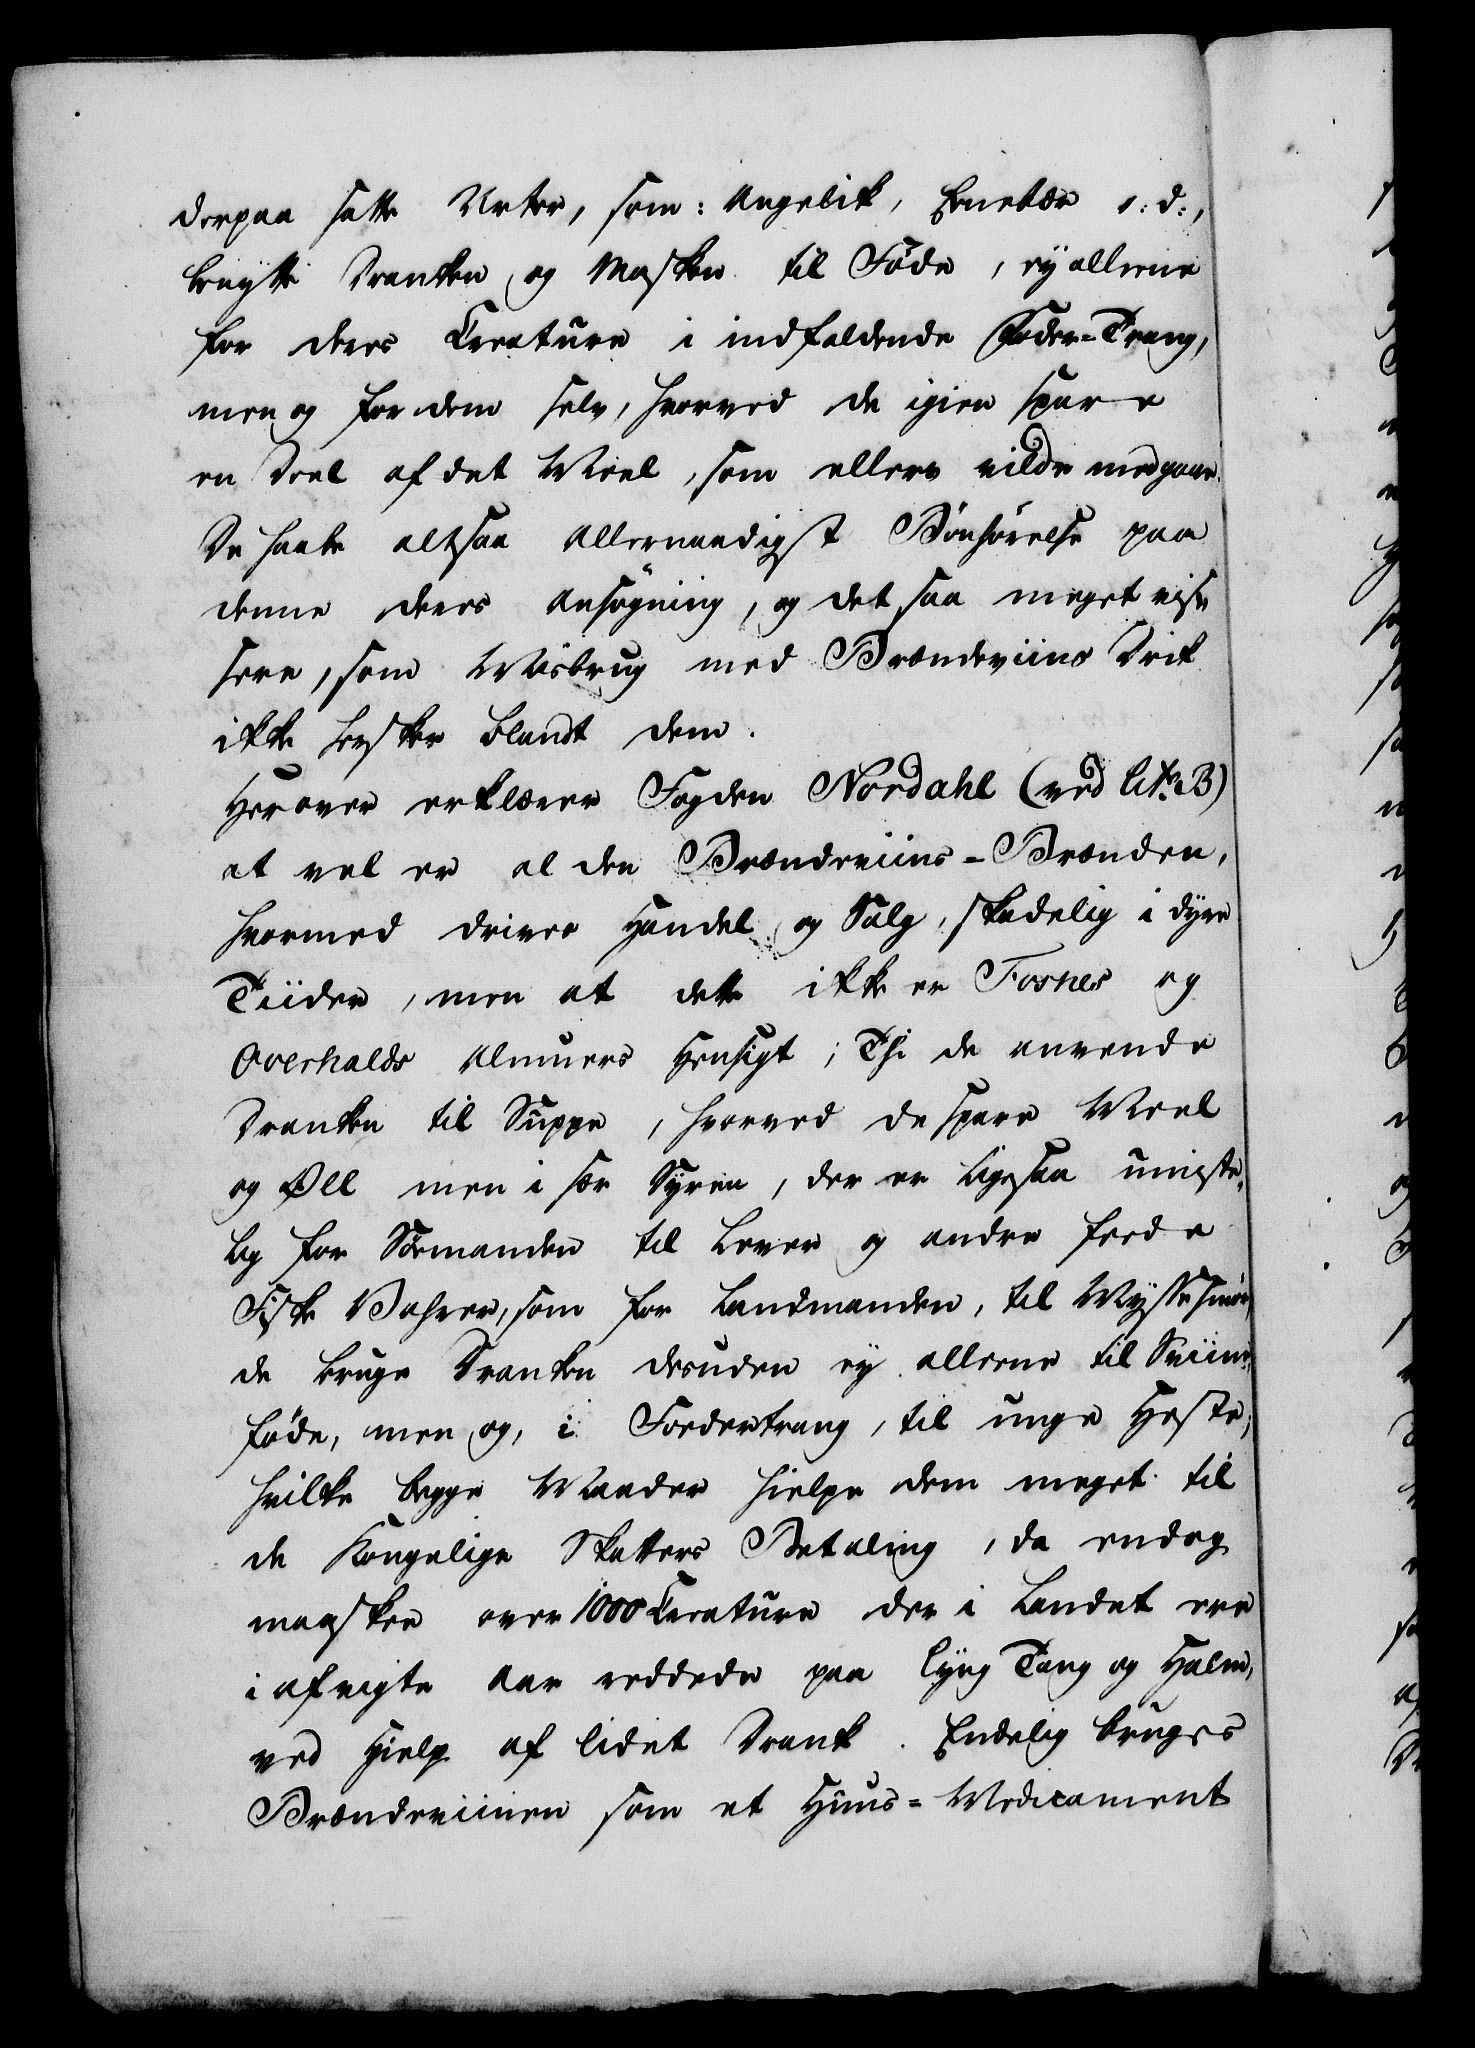 derpaa satte Urter, som: Angelik, Enebær o: d:,
benytte Dranken og Masken til Føde, ey alleene
for deres Creature i indfaldende Foder-Trang,
men og for dem selv, hvorved de igien spare
en Deel af det Meel, som ellers vilde medgaae.
De haabe altsaa allernaadigst Bønhørelse paa
denne deres Ansøgning, og det saa meget vis-
sere, som Misbrug med Brændeviins Drik
ikke hersker blandt dem.
Herover erklærer Fogden Nordahl (ved Litr. B)
at vel er al den Brændeviins-Brænden,
hvormed drives Handel og Salg, skadelig i dyre
Tiider, men at dette ikke er Fosnes og
Overhalds Almues Hensigt; Thi de anvende
Dranken til Suppe, hvorved de spare Meel
og Øll men i sær Syren, der er ligesaa umiste-
lig for Sømanden til Lever og andre feede
Fiske Vahrer, som for Landmanden, til Myssesmør,
de bruge Dranken desuden ey alleene til Sviine-
føde, men og, i Fodertrang, til unge Heste,
hvilke begge Maader hielpe dem meget til
de Kongelige Skatters Betaling, da endog
maaskee over 1000 Creature der i Landet ere
i afvigte Aar reddede paa Lyng Tang og Halm,
ved Hielp af lidet Drank. Endelig bruges
Brændeviinen som et Huus-Medicament